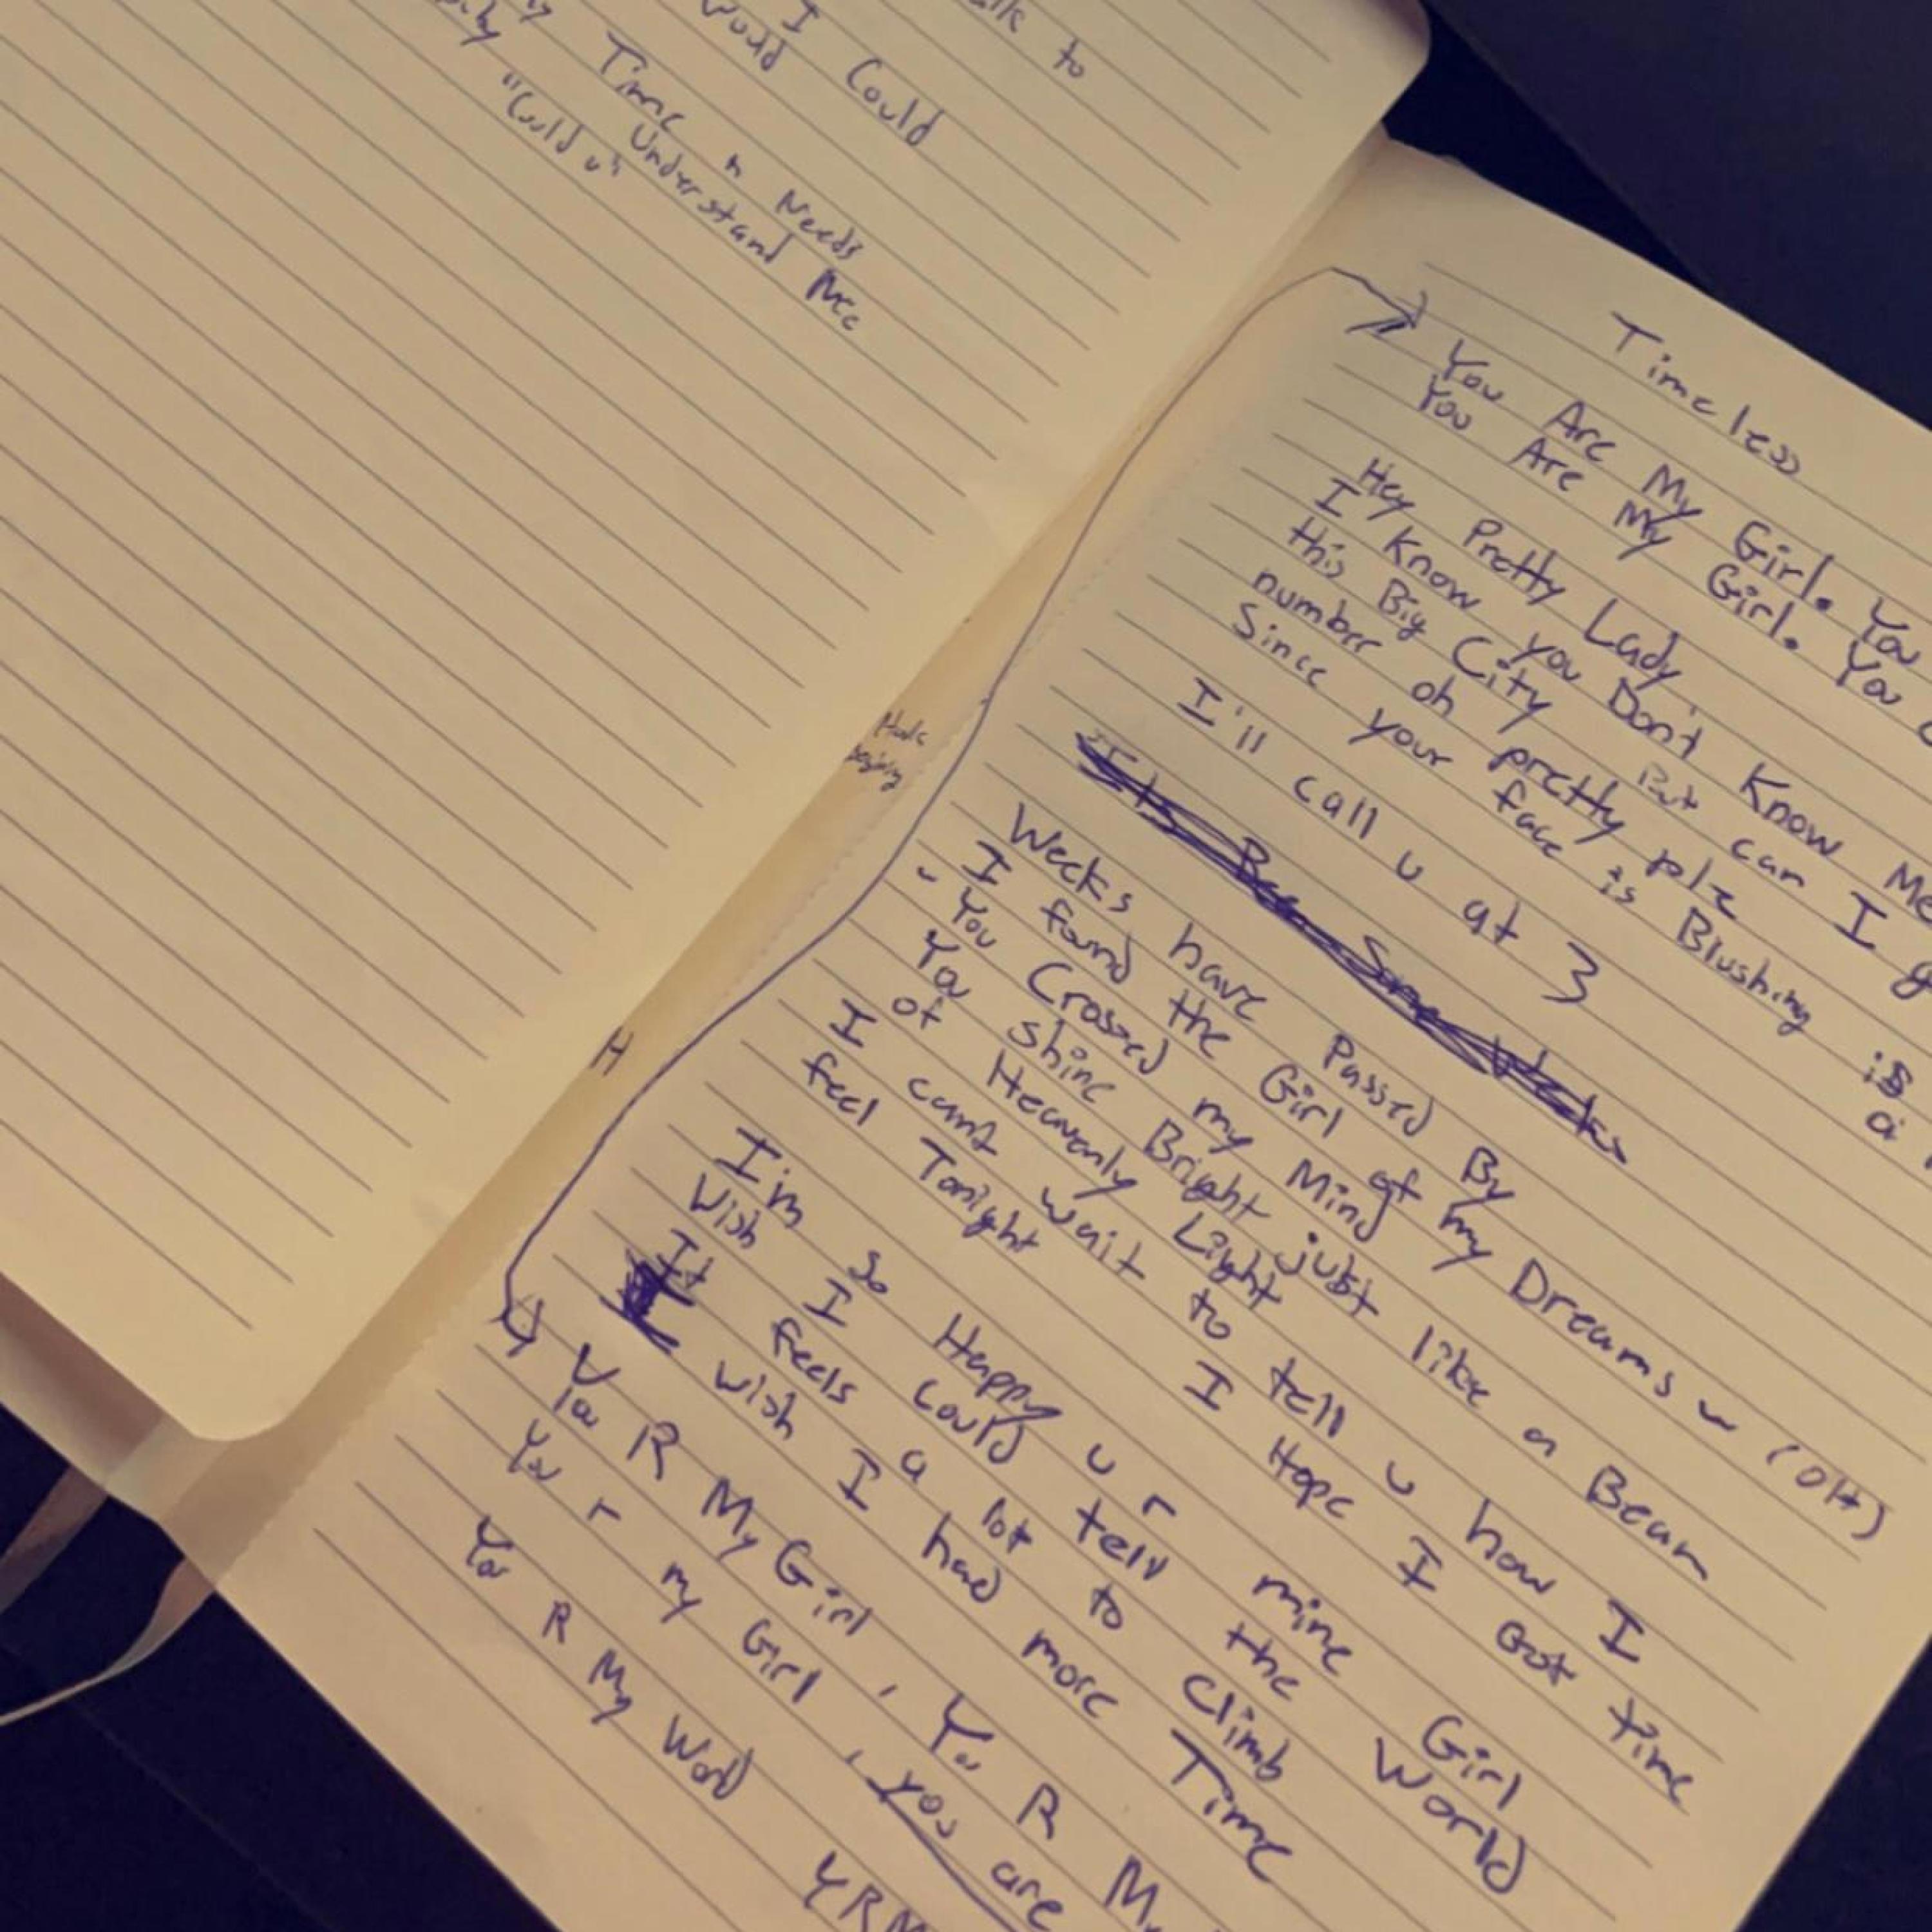 to
I Could
would
Time n Needs
Understand Me
"Could u"
Timeless
You Are My Girl. You
You Are My Girl. You
Hey Pretty Lady,
I know you Don't Know Me
this Big City But can I g
number oh pretty plz
Since your face is Blushing is
a
I'll call u at 3
Its Been Some Weeks
Weeks have Passed By
I found the Girl of my Dreams ~ (OH)
- You Crossed my Mind
You shine Bright just like a Beam
of Heavenly Light
I cant wait to tell u how I
feel Tonight I Hope I Got time
I'm so Happy u r mine Girl
Wish I could tell the World
It feels a lot to Climb
I wish I had more Time
Hook
H
You R My Girl, You R M
You r my Girl, you are
You R My World
YRM